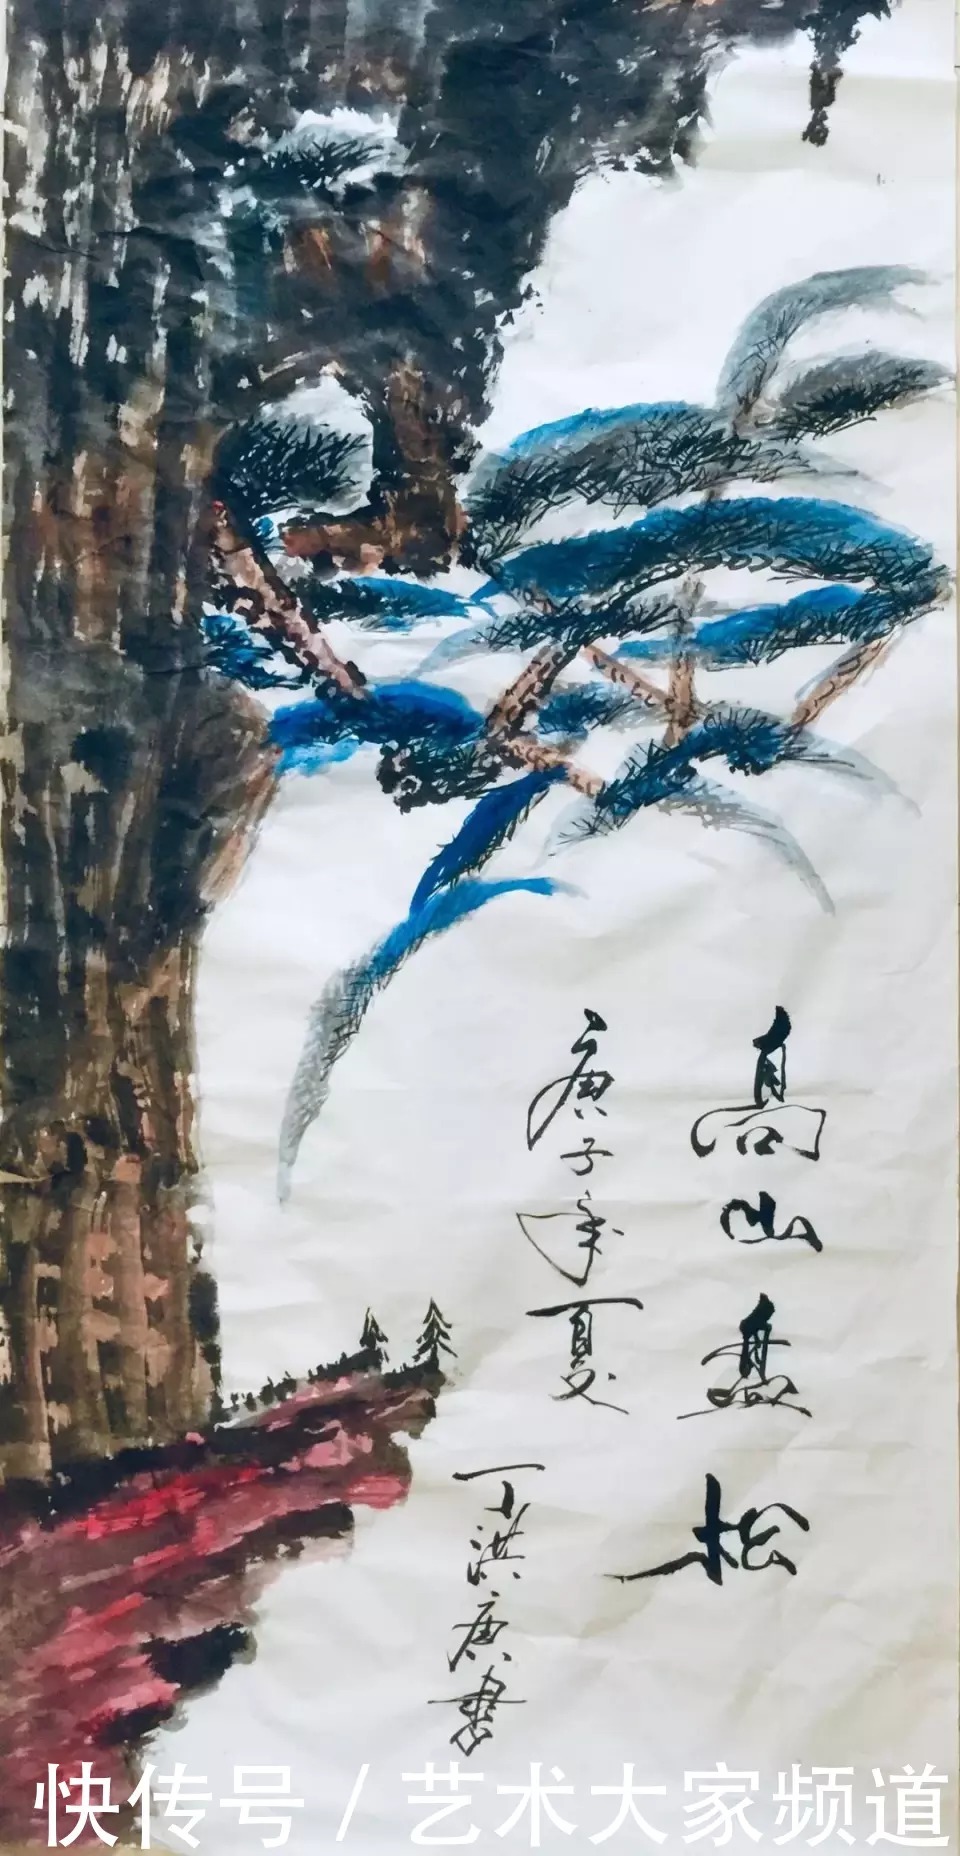 高山盘松
庚子年夏
丁洪庚书
快传号 / 艺术大家频道